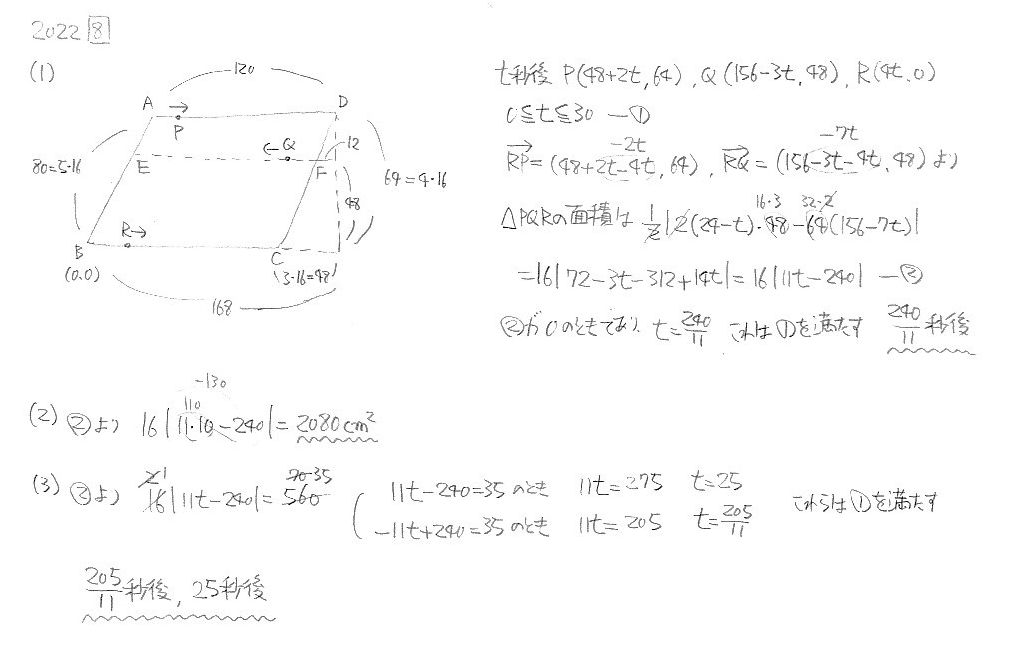 2022 8
(1)
120
A → D
P
← Q 12
80=5·16 E F 64=4·16
48
R→
B C
(0,0) 3·16=48
168
t秒後 P(48+2t, 64), Q(156-3t, 48), R(4t, 0)
0≦t≦30 ―①
-2t -7t
RP=(48+2t-4t, 64), RQ=(156-3t-4t, 48) より
16·3 32·2
△PQRの面積は 1/2|2(24-t)·48-64(156-7t)|
=16|72-3t-312+14t|=16|11t-240| ―②
②が0のときであり t=240/11 これは①を満たす 240/11秒後
-130
110
(2) ②より 16|11·10-240|=2080cm²
21 70 35
(3) ②より 16|11t-240|=560
11t-240=35のとき 11t=275 t=25
-11t+240=35のとき 11t=205 t=205/11 これらは①を満たす
205/11秒後, 25秒後